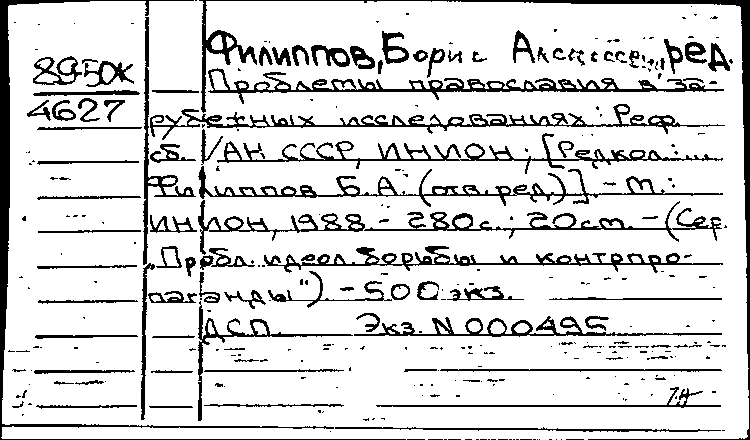 Филиппов, Борис Алексеевич, ред.
89-50к
4627
Проблемы православия в за-
рубежных исследованиях: Реф.
сб. /АН СССР, ИНИОН; [Редкол.:...
Филиппов Б.А. (отв. ред.)]. - М.:
ИНИОН, 1988. - 280 с.; 20 cm. - (Сер.
"Пробл. идеол. борьбы и контрпро-
паганды") - 500 экз.
ДСП. Экз. N 000495